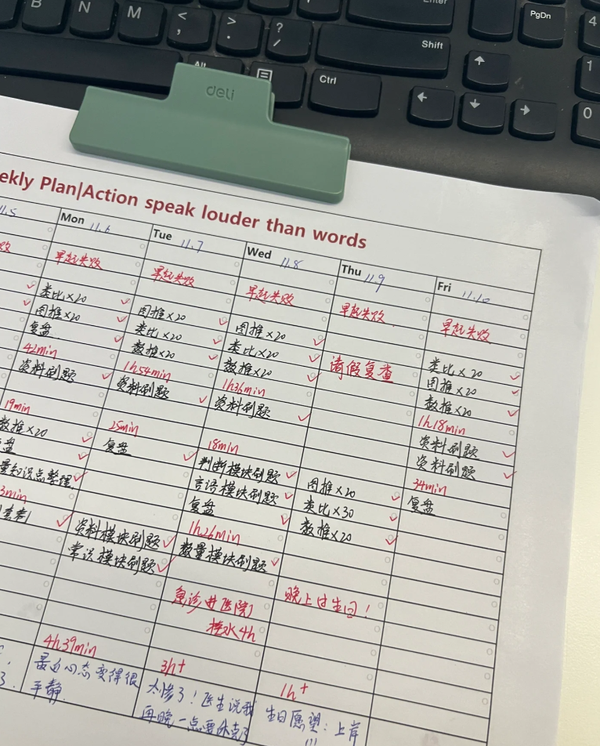 B
N
M
<
,
>
.
?
/
Shift
Alt
Ctrl
Enter
PgDn
1
0
←
↓
→
↑
deli
ekly Plan|Action speak louder than words
11.5
Mon 11.6
Tue 11.7
Wed 11.8
Thu 11.9
Fri 11.10
早起失败
早起失败
早起失败
早起失败
早起失败
类比×20
图推×20
复盘
42min
资料刷题
图推×20
类比×20
数推×20
1h54min
资料刷题
图推×20
类比×20
数推×20
1h36min
资料刷题
请假复查
类比×20
图推×20
数推×20
1h18min
资料刷题
资料刷题
34min
复盘
19min
数推×20
复盘
3min
25min
复盘
资料模块刷题
常识模块刷题
18min
判断模块刷题
言语模块刷题
复盘
1h26min
数量模块刷题
图推×20
类比×30
数推×20
急诊进医院
挂水4h
晚上过生日!
4h39min
最近心态变得很
平静
3h+
太惨了!医生说我
再晚一点要休克了
1h+
生日愿望:上岸
!!!